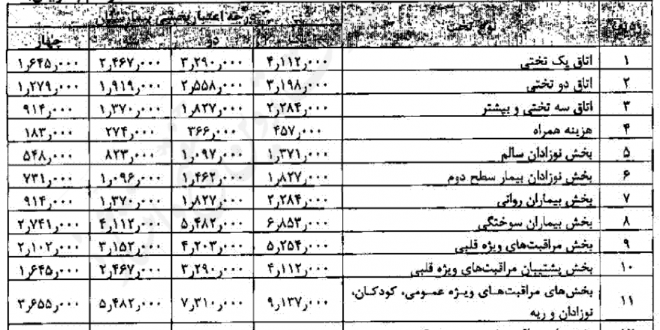 درجه اعتباربخشی بیمارستان
ردیف نوع تخت یک دو سه چهار
۱ اتاق یک تختی ۴٫۱۱۲٫۰۰۰ ۳٫۲۹۰٫۰۰۰ ۲٫۴۶۷٫۰۰۰ ۱٫۶۴۵٫۰۰۰
۲ اتاق دو تختی ۳٫۱۹۸٫۰۰۰ ۲٫۵۵۸٫۰۰۰ ۱٫۹۱۹٫۰۰۰ ۱٫۲۷۹٫۰۰۰
۳ اتاق سه تختی و بیشتر ۲٫۲۸۴٫۰۰۰ ۱٫۸۲۷٫۰۰۰ ۱٫۳۷۰٫۰۰۰ ۹۱۴٫۰۰۰
۴ هزینه همراه ۴۵۷٫۰۰۰ ۳۶۶٫۰۰۰ ۲۷۴٫۰۰۰ ۱۸۳٫۰۰۰
۵ بخش نوزادان سالم ۱٫۳۷۱٫۰۰۰ ۱٫۰۹۷٫۰۰۰ ۸۲۳٫۰۰۰ ۵۴۸٫۰۰۰
۶ بخش نوزادان بیمار سطح دوم ۱٫۸۲۷٫۰۰۰ ۱٫۴۶۲٫۰۰۰ ۱٫۰۹۶٫۰۰۰ ۷۳۱٫۰۰۰
۷ بخش بیماران روانی ۲٫۲۸۴٫۰۰۰ ۱٫۸۲۷٫۰۰۰ ۱٫۳۷۰٫۰۰۰ ۹۱۴٫۰۰۰
۸ بخش بیماران سوختگی ۶٫۸۵۳٫۰۰۰ ۵٫۴۸۲٫۰۰۰ ۴٫۱۱۲٫۰۰۰ ۲٫۷۴۱٫۰۰۰
۹ بخش مراقبت‌های ویژه قلبی ۵٫۲۵۴٫۰۰۰ ۴٫۲۰۳٫۰۰۰ ۳٫۱۵۲٫۰۰۰ ۲٫۱۰۲٫۰۰۰
۱۰ بخش پشتیبان مراقبت‌های ویژه قلبی ۴٫۱۱۲٫۰۰۰ ۳٫۲۹۰٫۰۰۰ ۲٫۴۶۷٫۰۰۰ ۱٫۶۴۵٫۰۰۰
۱۱ بخش‌های مراقبت‌های ویژه عمومی، کودکان، ۹٫۱۳۷٫۰۰۰ ۷٫۳۱۰٫۰۰۰ ۵٫۴۸۲٫۰۰۰ ۳٫۶۵۵٫۰۰۰
نوزادان و ریه